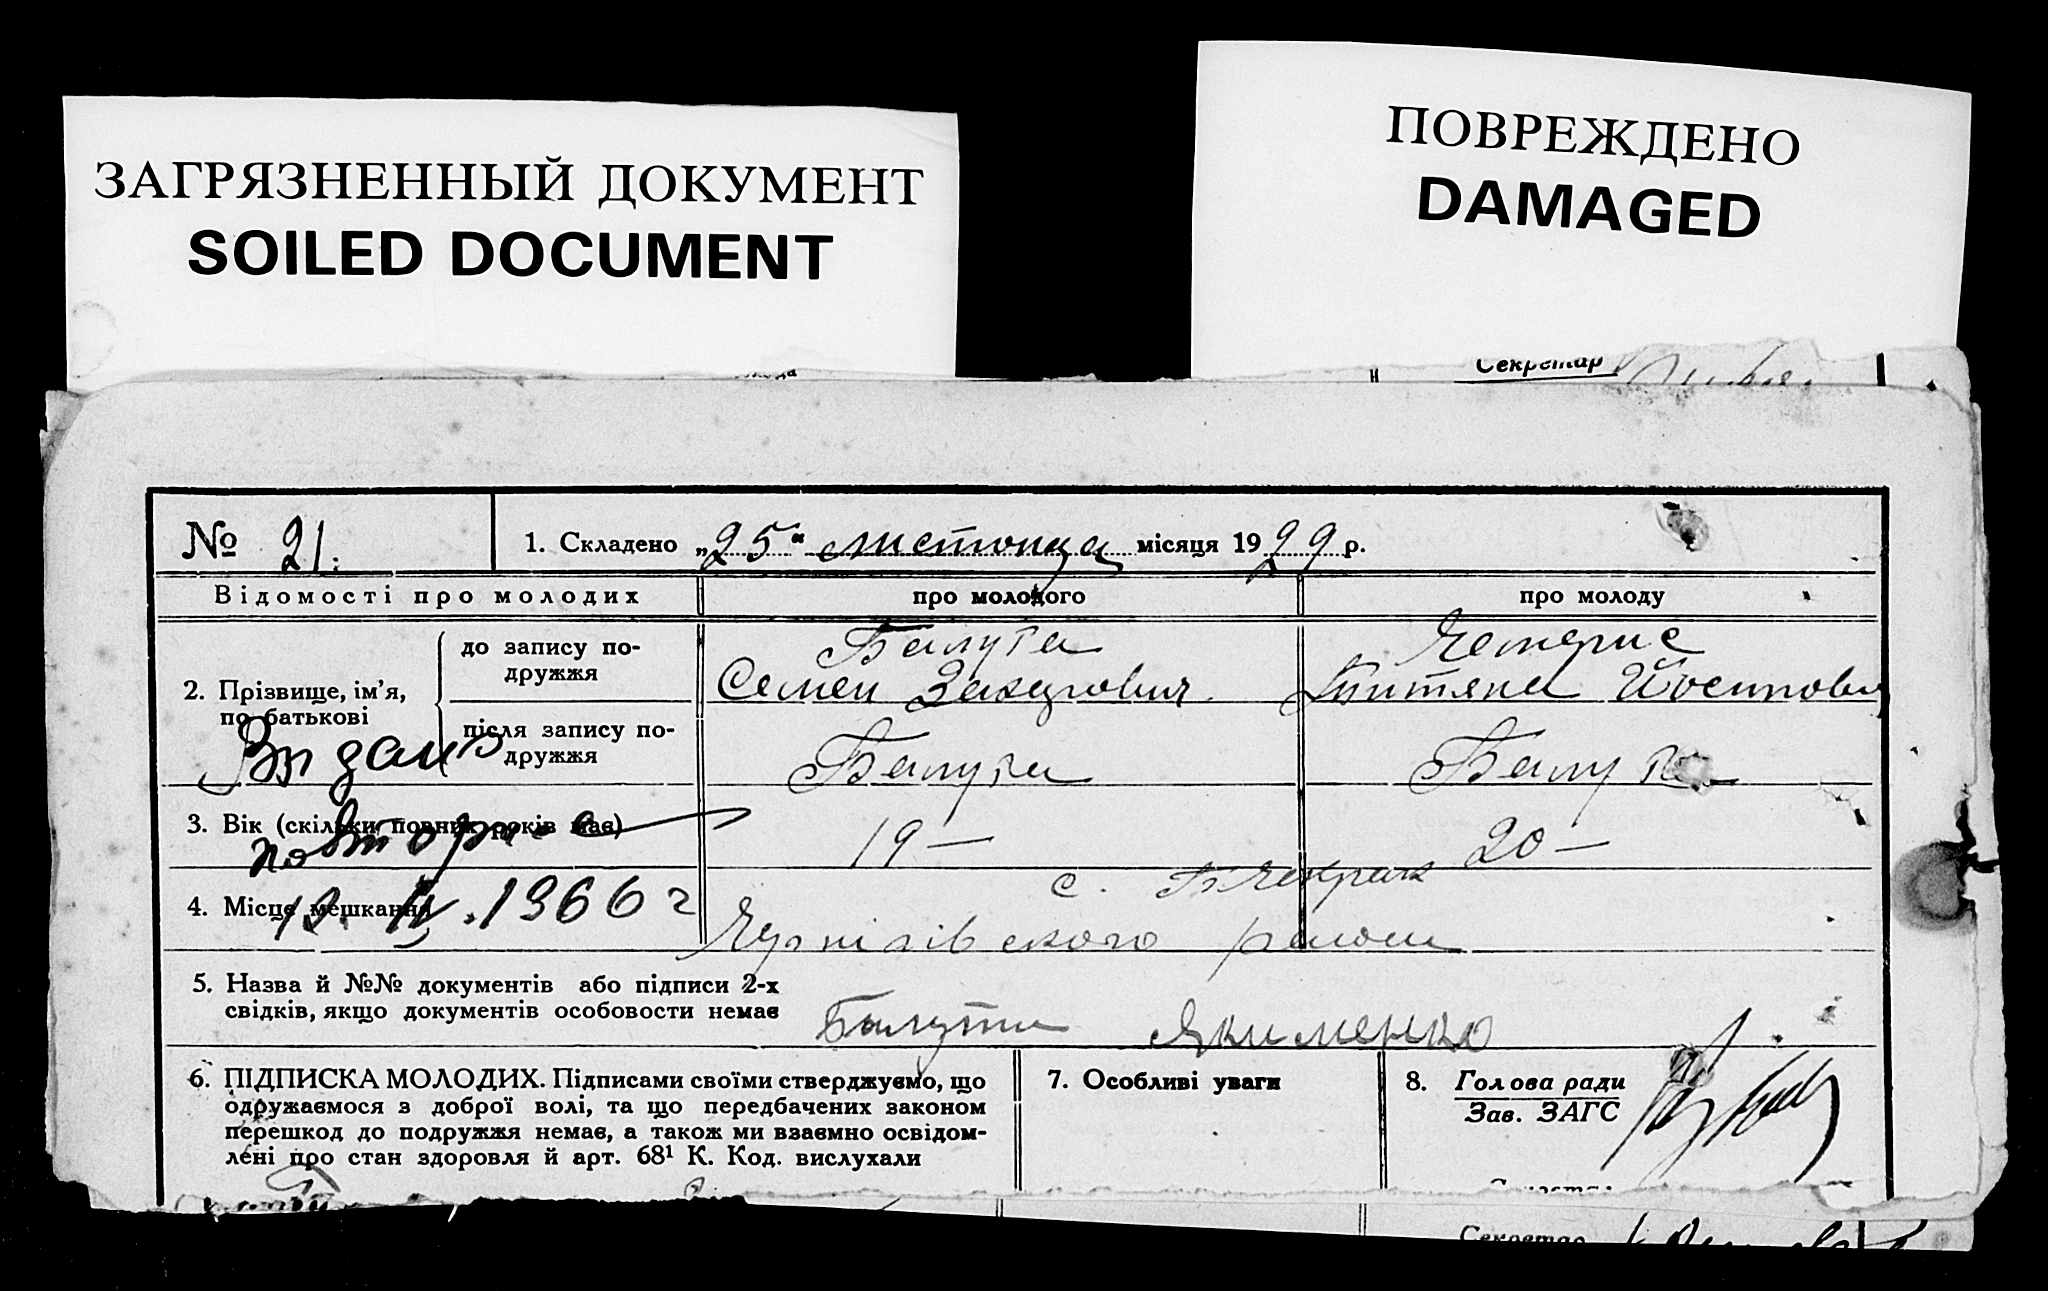 ЗАГРЯЗНЕННЫЙ ДОКУМЕНТ
SOILED DOCUMENT
ПОВРЕЖДЕНО
DAMAGED
Секретар
№ 21. 1. Складено „25" листопада місяця 1929 р.
Відомості про молодих про молодого про молоду
2. Прізвище, ім'я, по батькові
до запису по-
дружжя
Балута
Семен Захарович
Титяна Йосиповн
після запису по-
дружжя
Балута Балута
Видано
3. Вік (скільки повних років має) 19 — 20 —
повторно
4. Місце мешкання с.
1966 г
району
5. Назва й №№ документів або підписи 2-х
свідків, якщо документів особовости немає Балута Якименко
6. ПІДПИСКА МОЛОДИХ. Підписами своїми стверджуємо, що
одружаємося з доброї волі, та що передбачених законом
перешкод до подружжя немає, а також ми взаємно освідом-
лені про стан здоровля й арт. 68¹ К. Код. вислухали
7. Особливі уваги
8. Голова ради
Зав. ЗАГС
Секретар